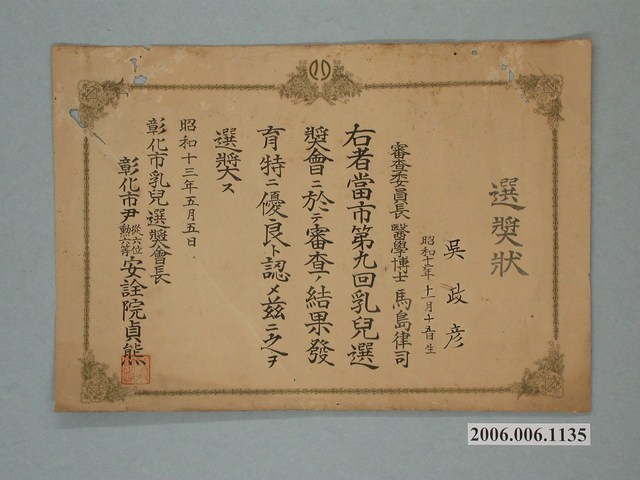 選奨状
吳政彦
昭和十二年十一月十五日生
審査委員長 醫學博士 馬島律司
右者當市第九回乳兒選
奨會ニ於テ審査ノ結果發
育特ニ優良ト認メ茲ニ之ヲ
選奨ス
昭和十三年五月五日
彰化市乳兒選奨會長
彰化市尹 從六位勲六等 安詮院貞熊
2006.006.1135